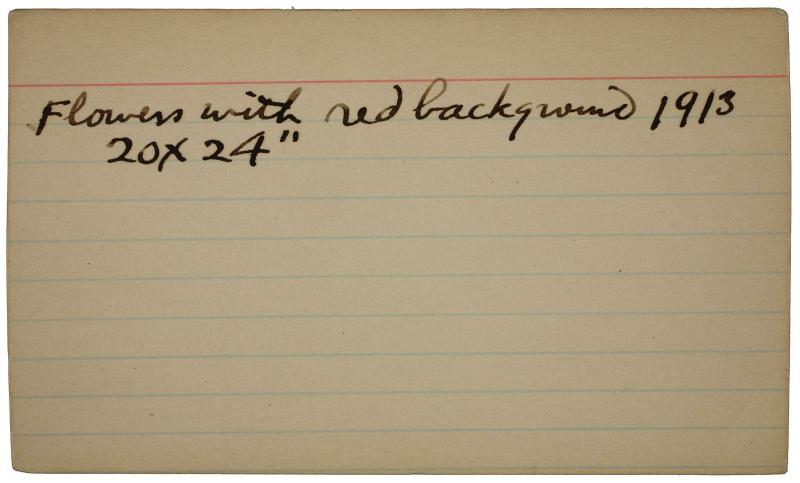 Flowers with red background 1913
20x24"